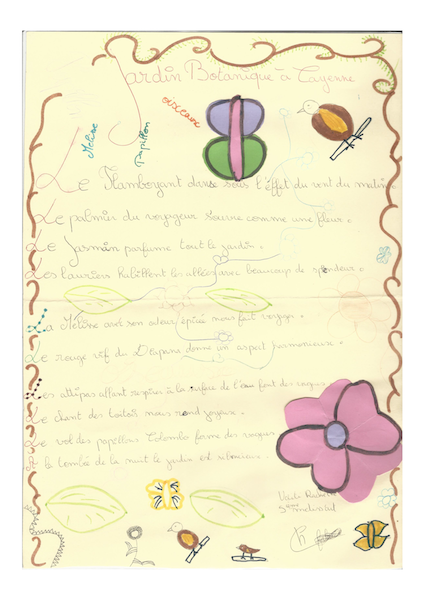 Jardin Botanique à Cayenne
Mélisse
Papillon
Le Flamboyant danse sous l'effet du vent du matin.
Le palmier du voyageur s'ouvre comme une fleur.
Le Jasmin parfume tout le jardin.
Les lauriers habillent les allées avec beaucoup de splendeur.
La Mélisse avec son odeur épicée nous fait voyager.
Le rouge vif du donne un aspect harmonieux.
Les attipas allant respirer à la surface de l'eau font des vagues.
Le chant des nous rend joyeux.
Le vol des papillons Colombo forme des vagues
A la tombée de la nuit le jardin est silencieux.